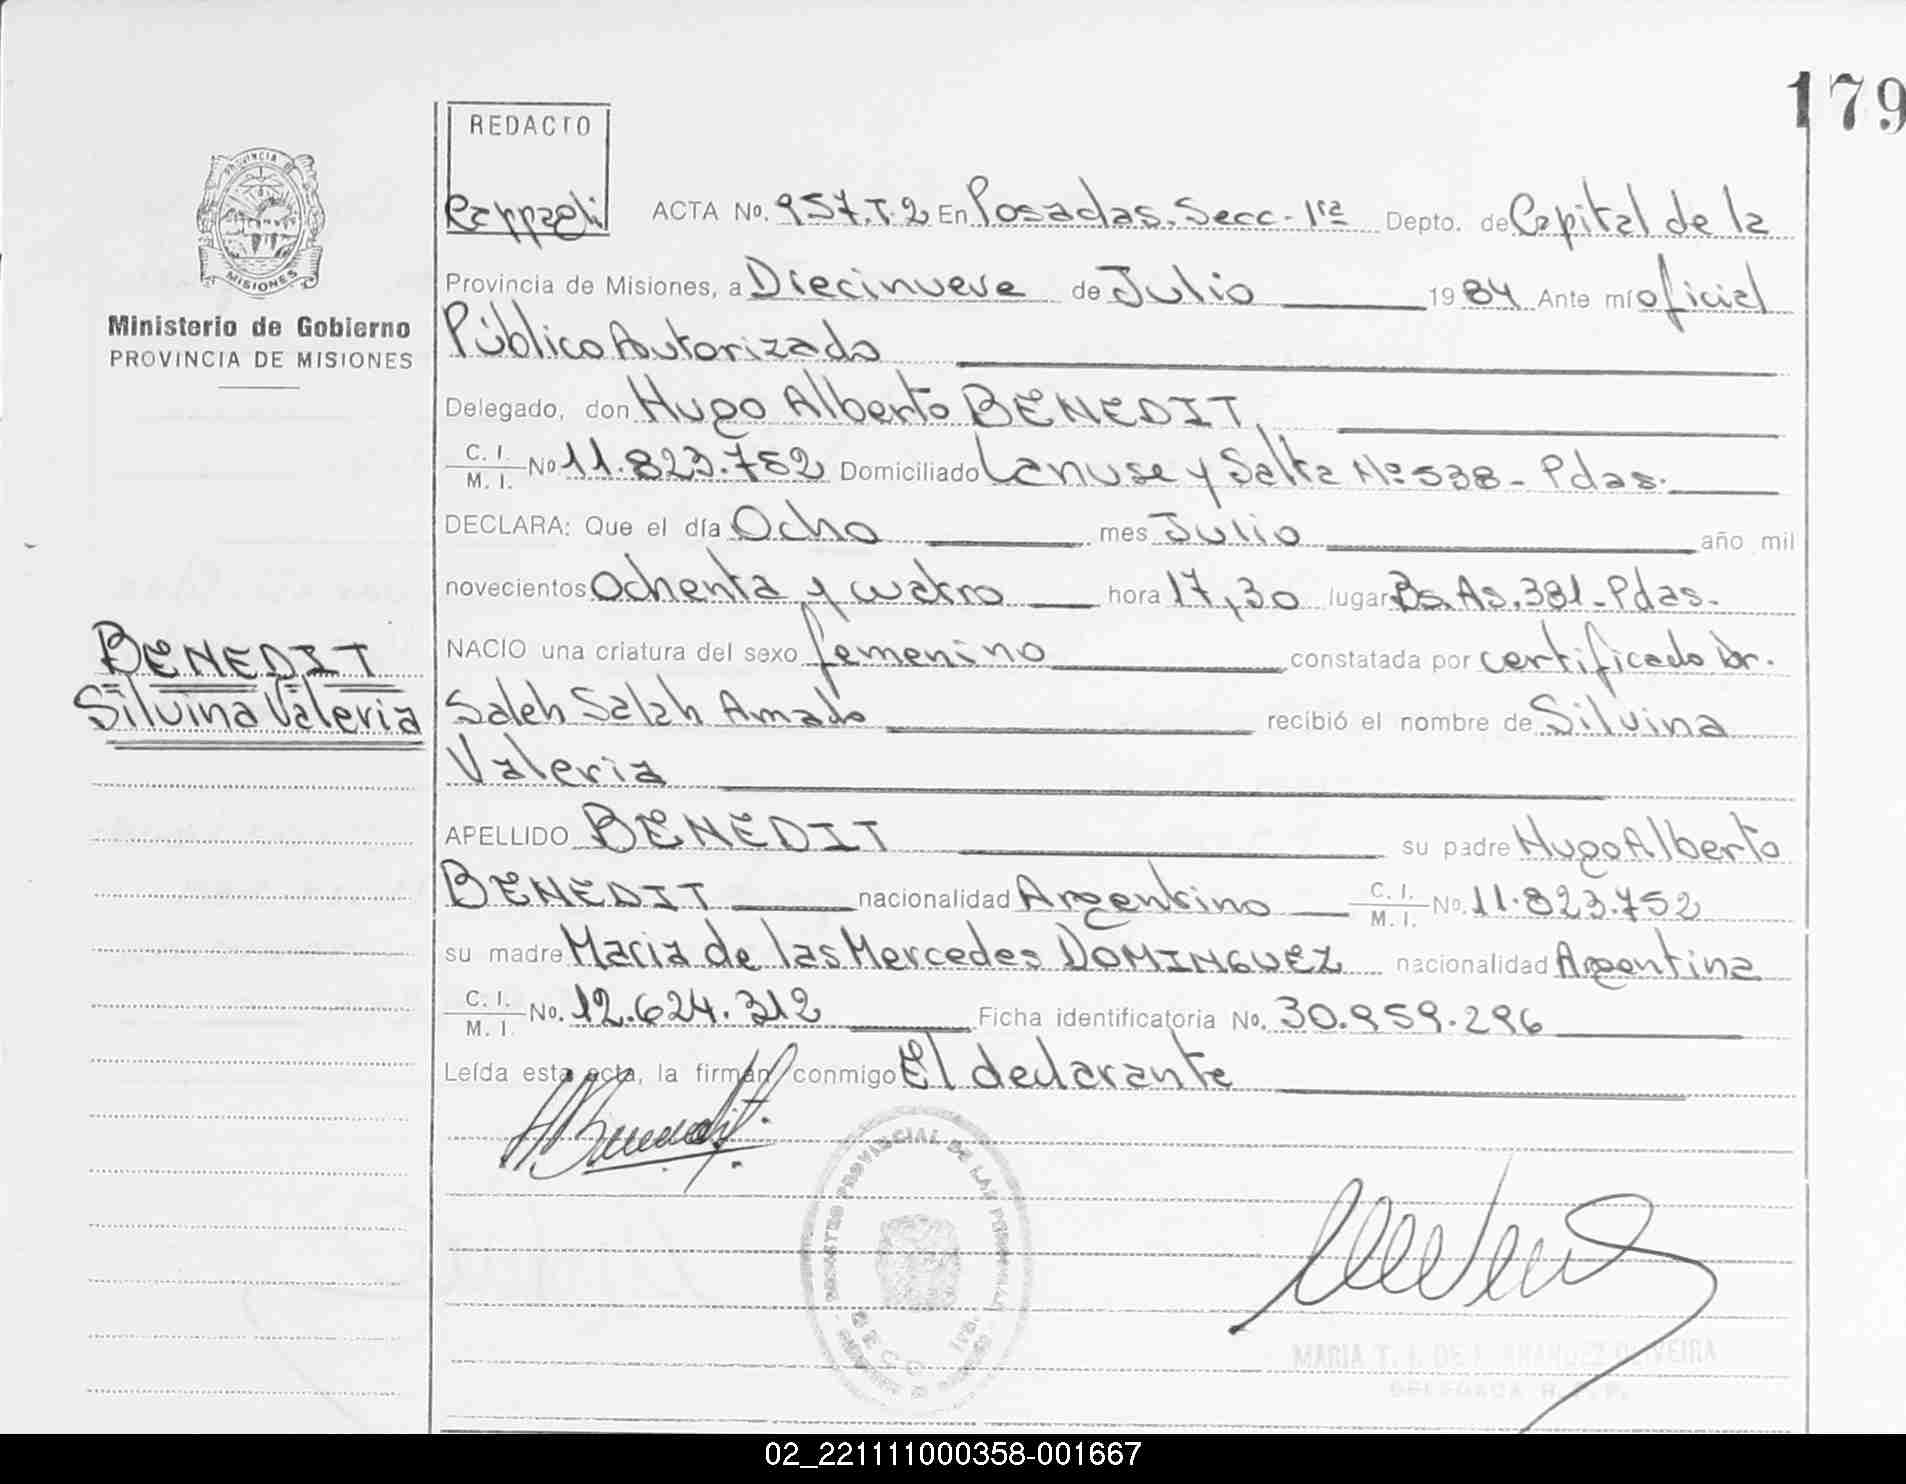 179
REDACTO
Rappaeli
PROVINCIA DE
MISIONES
Ministerio de Gobierno
PROVINCIA DE MISIONES
ACTA No. 957.T.2 En Posadas. Secc. 1ra Depto. de Capital de la
Provincia de Misiones, a Diecinueve de Julio 1984 Ante mí oficial
Público Autorizado
Delegado, don Hugo Alberto BENEDIT,
C. I. / M. I. No 11.823.752 Domiciliado Lanuse y Salta No 538 - Pdas.
DECLARA: Que el día Ocho mes Julio año mil
novecientos Ochenta y cuatro hora 17,30 lugar Bs. As. 381 - Pdas.
NACIO una criatura del sexo femenino constatada por certificado Dr.
BENEDIT
Silvina Valeria
Saleh Salah Amado recibió el nombre de Silvina
Valeria
APELLIDO BENEDIT su padre Hugo Alberto
BENEDIT nacionalidad Argentino C. I. / M. I. No. 11.823.752
su madre Maria de las Mercedes DOMINGUEZ nacionalidad Argentina
C. I. / M. I. No. 12.624.312 Ficha identificatoria No. 30.959.296
Leída esta acta, la firman conmigo El declarante
HBenedit.
REGISTRO PROVINCIAL DE LAS PERSONAS
SECC. 1RA.
MARIA T. DE OLIVEIRA
DELEGADA R. P. P.
02_221111000358-001667